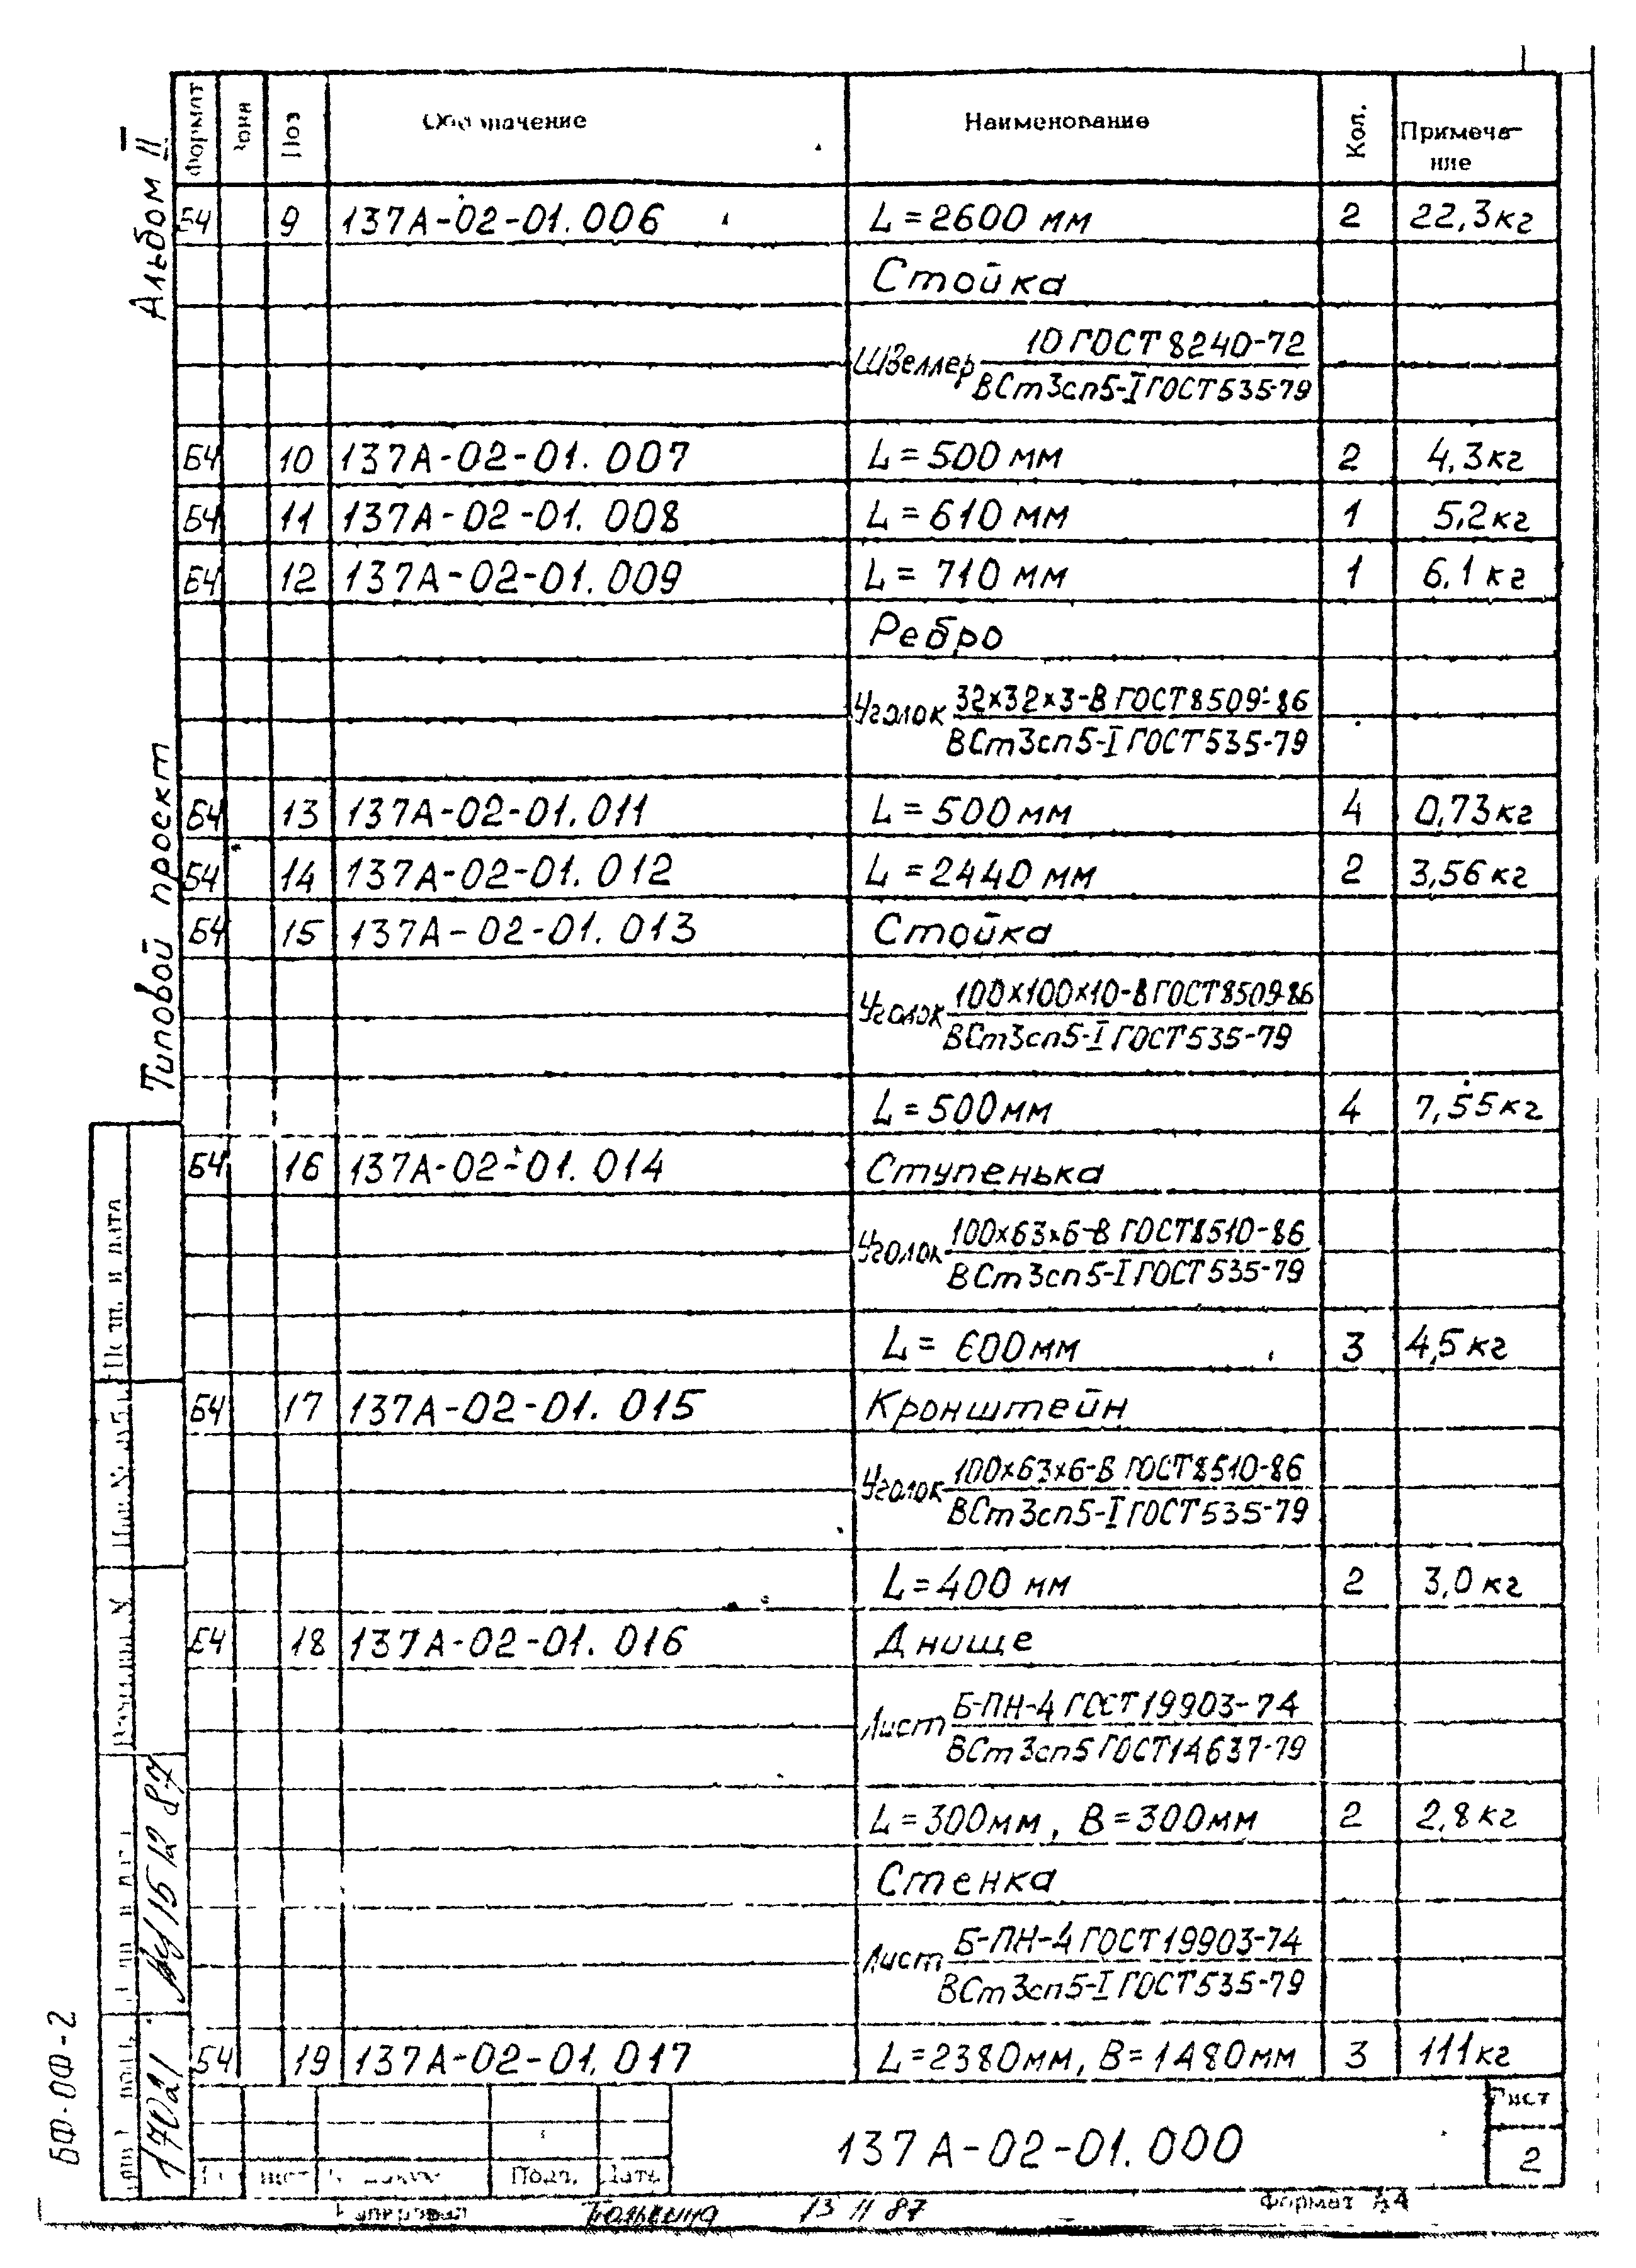 Формат Зона Поз Обозначение Наименование Кол. Примеча-
ние
Б4 9 137А-02-01.006 L=2600 мм 2 22,3кг
Стойка
Швеллер 10 ГОСТ 8240-72
ВСт3сп5-I ГОСТ 535-79
Б4 10 137А-02-01.007 L=500 мм 2 4,3кг
Б4 11 137А-02-01.008 L=610 мм 1 5,2кг
Б4 12 137А-02-01.009 L=710 мм 1 6,1кг
Ребро
Уголок 32х32х3-В ГОСТ 8509-86
ВСт3сп5-I ГОСТ 535-79
Б4 13 137А-02-01.011 L=500мм 4 0,73кг
Б4 14 137А-02-01.012 L=2440 мм 2 3,56кг
Б4 15 137А-02-01.013 Стойка
Уголок 100х100х10-В ГОСТ 8509-86
ВСт3сп5-I ГОСТ 535-79
L=500мм 4 7,55кг
Б4 16 137А-02-01.014 Ступенька
Уголок 100х63х6-В ГОСТ 8510-86
ВСт3сп5-I ГОСТ 535-79
L=600мм 3 4,5кг
Б4 17 137А-02-01.015 Кронштейн
Уголок 100х63х6-В ГОСТ 8510-86
ВСт3сп5-I ГОСТ 535-79
L=400 мм 2 3,0кг
Б4 18 137А-02-01.016 Днище
Лист Б-ПН-4 ГОСТ 19903-74
ВСт3сп5 ГОСТ 14637-79
L=300мм, В=300мм 2 2,8кг
Стенка
Лист Б-ПН-4 ГОСТ 19903-74
ВСт3сп5-I ГОСТ 535-79
Б4 19 137А-02-01.017 L=2380мм, В=1480мм 3 111кг
137А-02-01.000
Лист
2
Подп. Дата
Копировал 13 11 87 Формат А4
Альбом II
Типовой проект
Подп. и дата
15 12 87
17021
БФ-ОФ-2